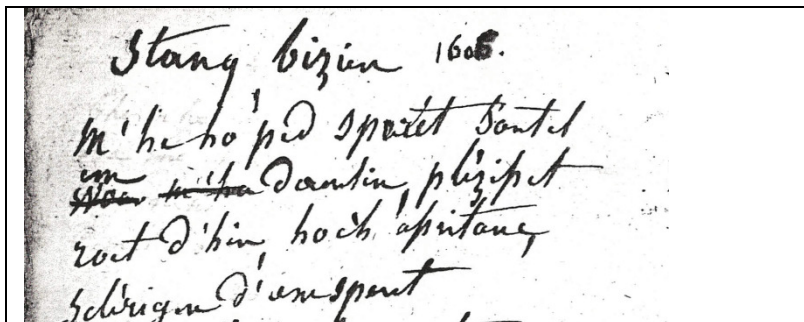 Stang bizien 1606.
M'ho ho ped speret Santel
em daoulin, plizipet
roet d'hin, hoch' assistanç,
Sclerigen d'em speret